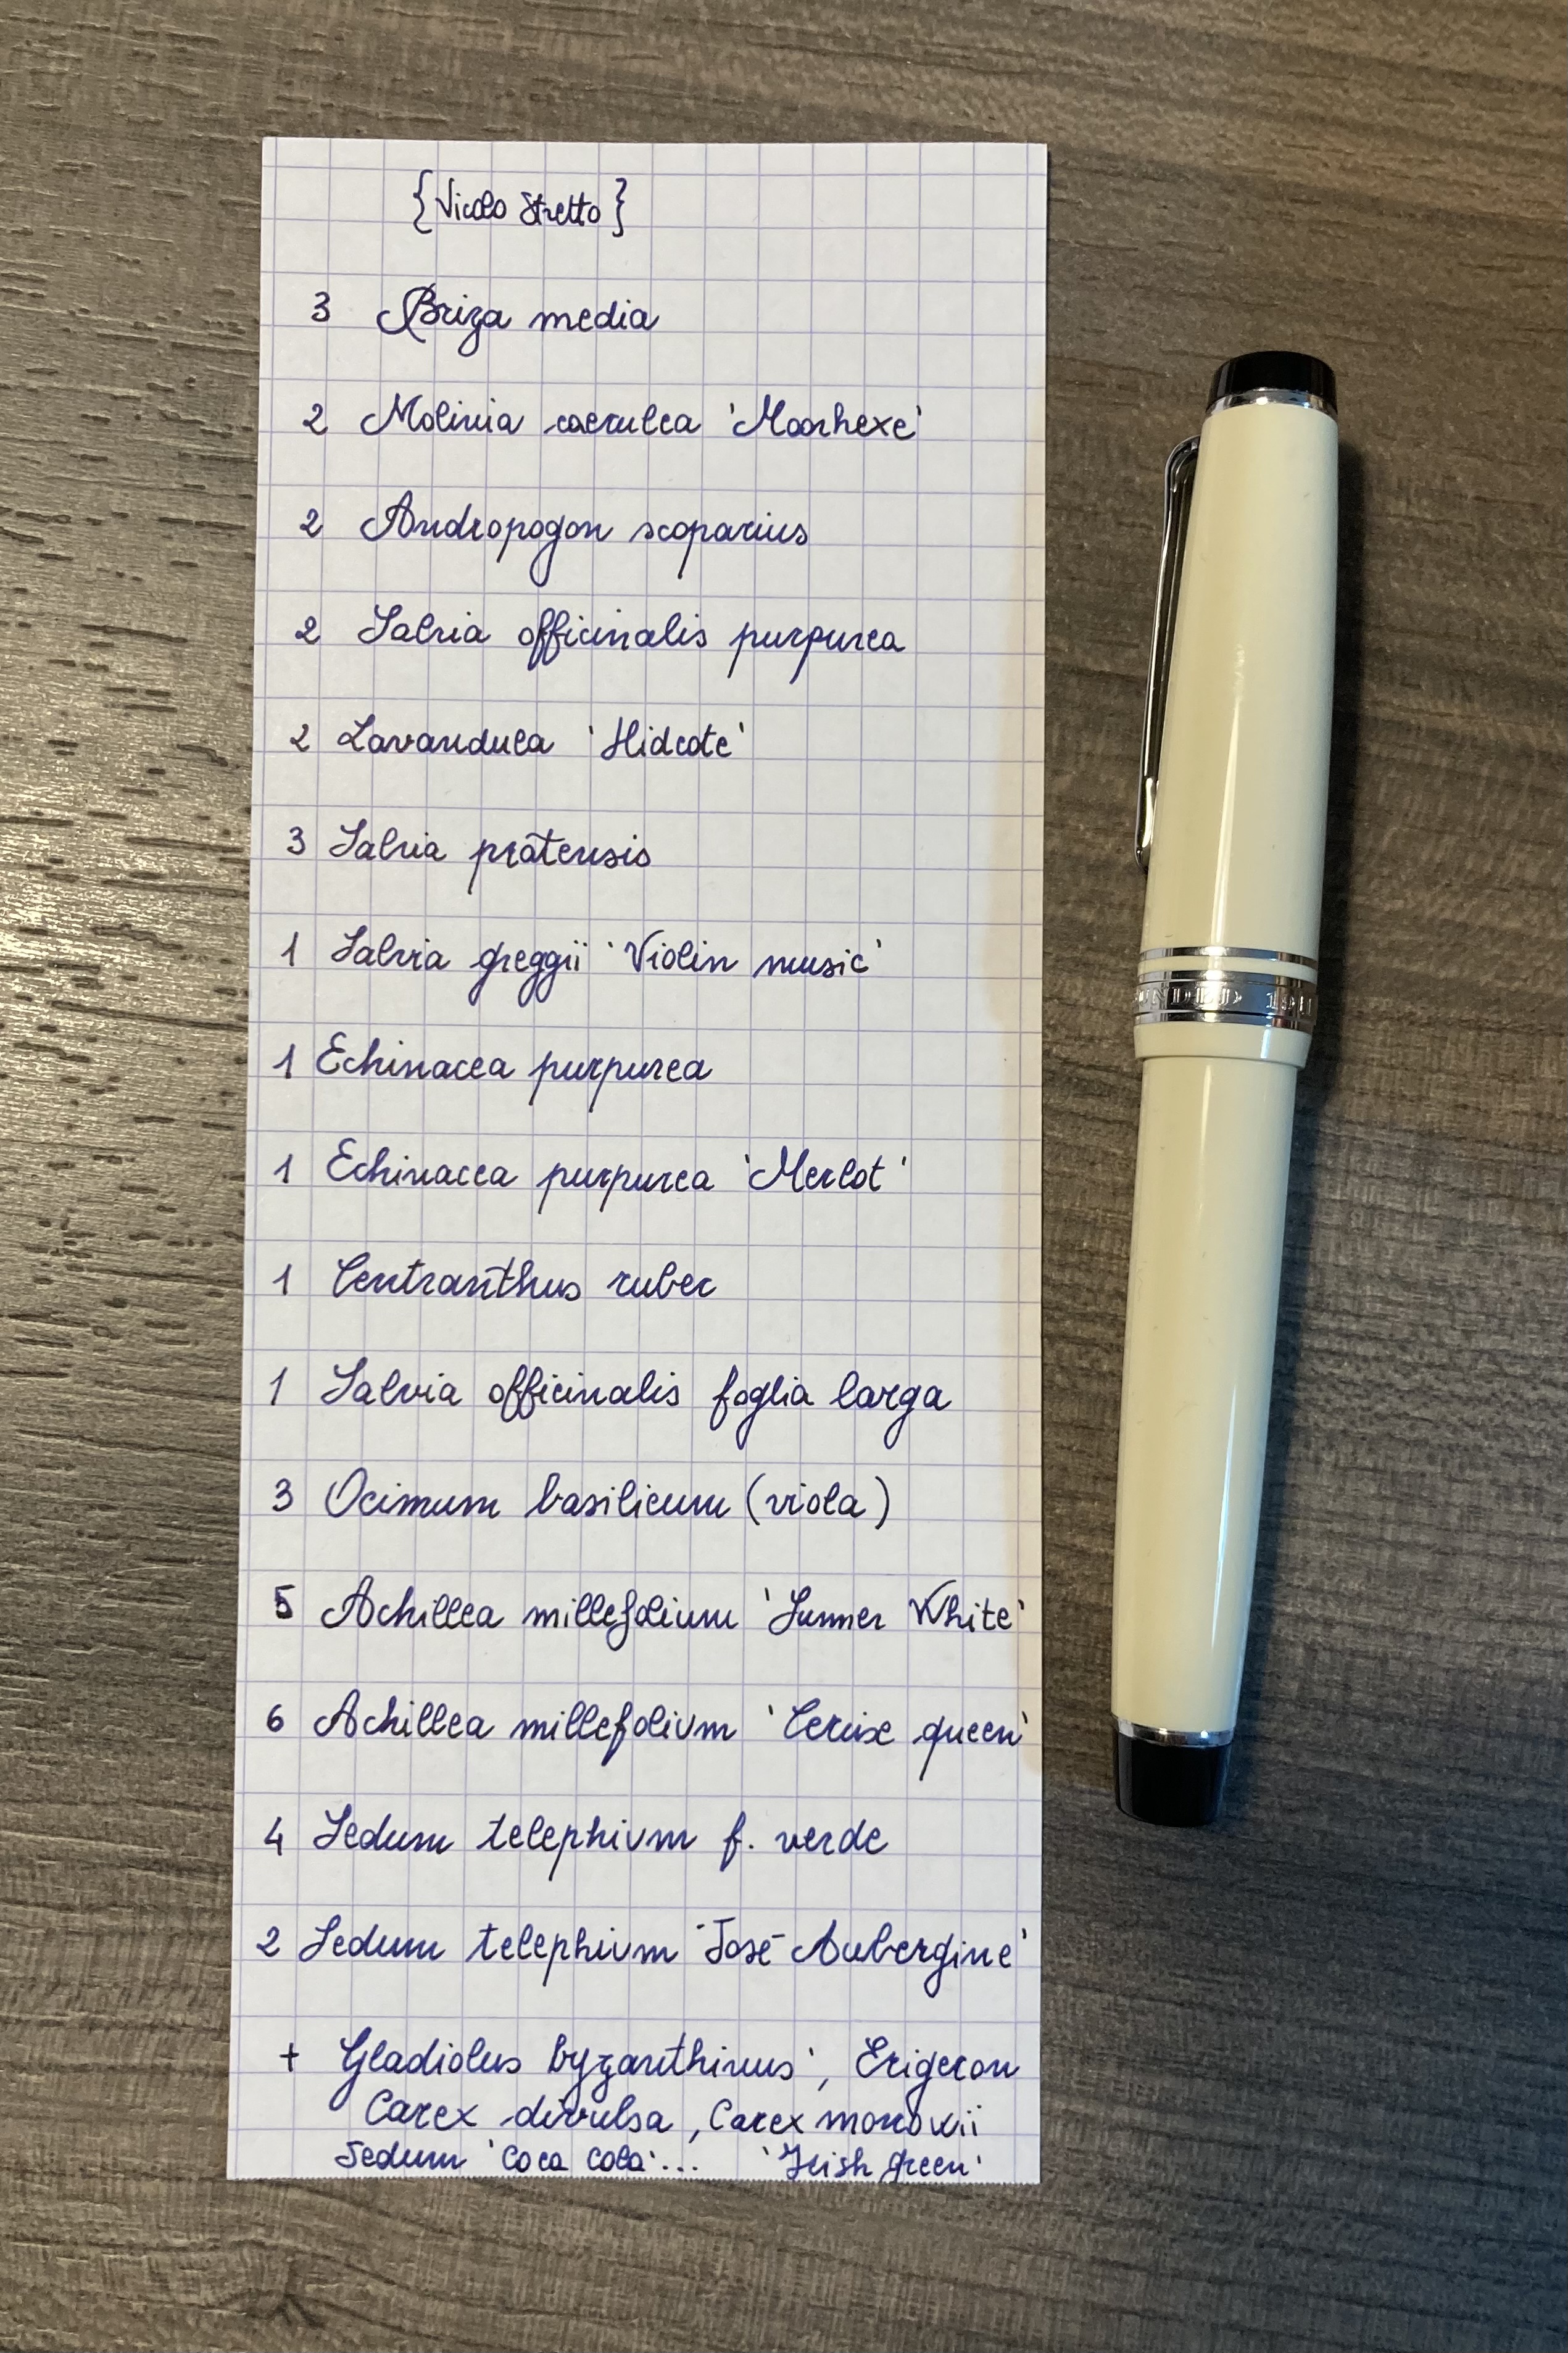 {Vicolo Stretto}
3 Briza media
2 Molinia caerulea 'Moorhexe'
2 Andropogon scoparius
2 Salvia officinalis purpurea
2 Lavandula 'Hidcote'
3 Salvia pratensis
1 Salvia greggii 'Violin music'
1 Echinacea purpurea
1 Echinacea purpurea 'Merlot'
1 Centranthus ruber
1 Salvia officinalis foglia larga
3 Ocimum basilicum (viola)
5 Achillea millefolium 'Summer White'
6 Achillea millefolium 'Cerise queen'
4 Sedum telephium f. verde
2 Sedum telephium 'José Aubergine'
+ Gladiolus byzanthinus', Erigeron
Carex divulsa, Carex morrowii
Sedum 'Coca cola'... 'Irish green'